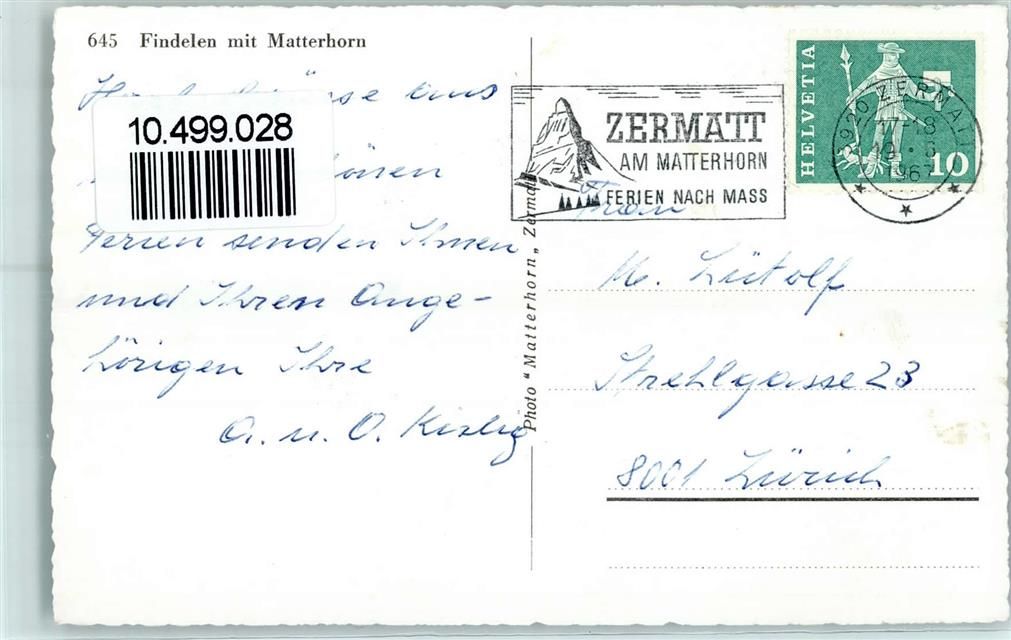 645 Findelen mit Matterhorn
aus
10.499.028
Ferien senden Ihnen
und Ihren Ange-
hörigen Ihre
A. u. O.
Photo "Matterhorn" Zermatt
ZERMATT
AM MATTERHORN
FERIEN NACH MASS
HELVETIA
10
3920 ZERMATT
17-18
Frau
M. Lütolf
Strehlgasse 23
8001 Zürich